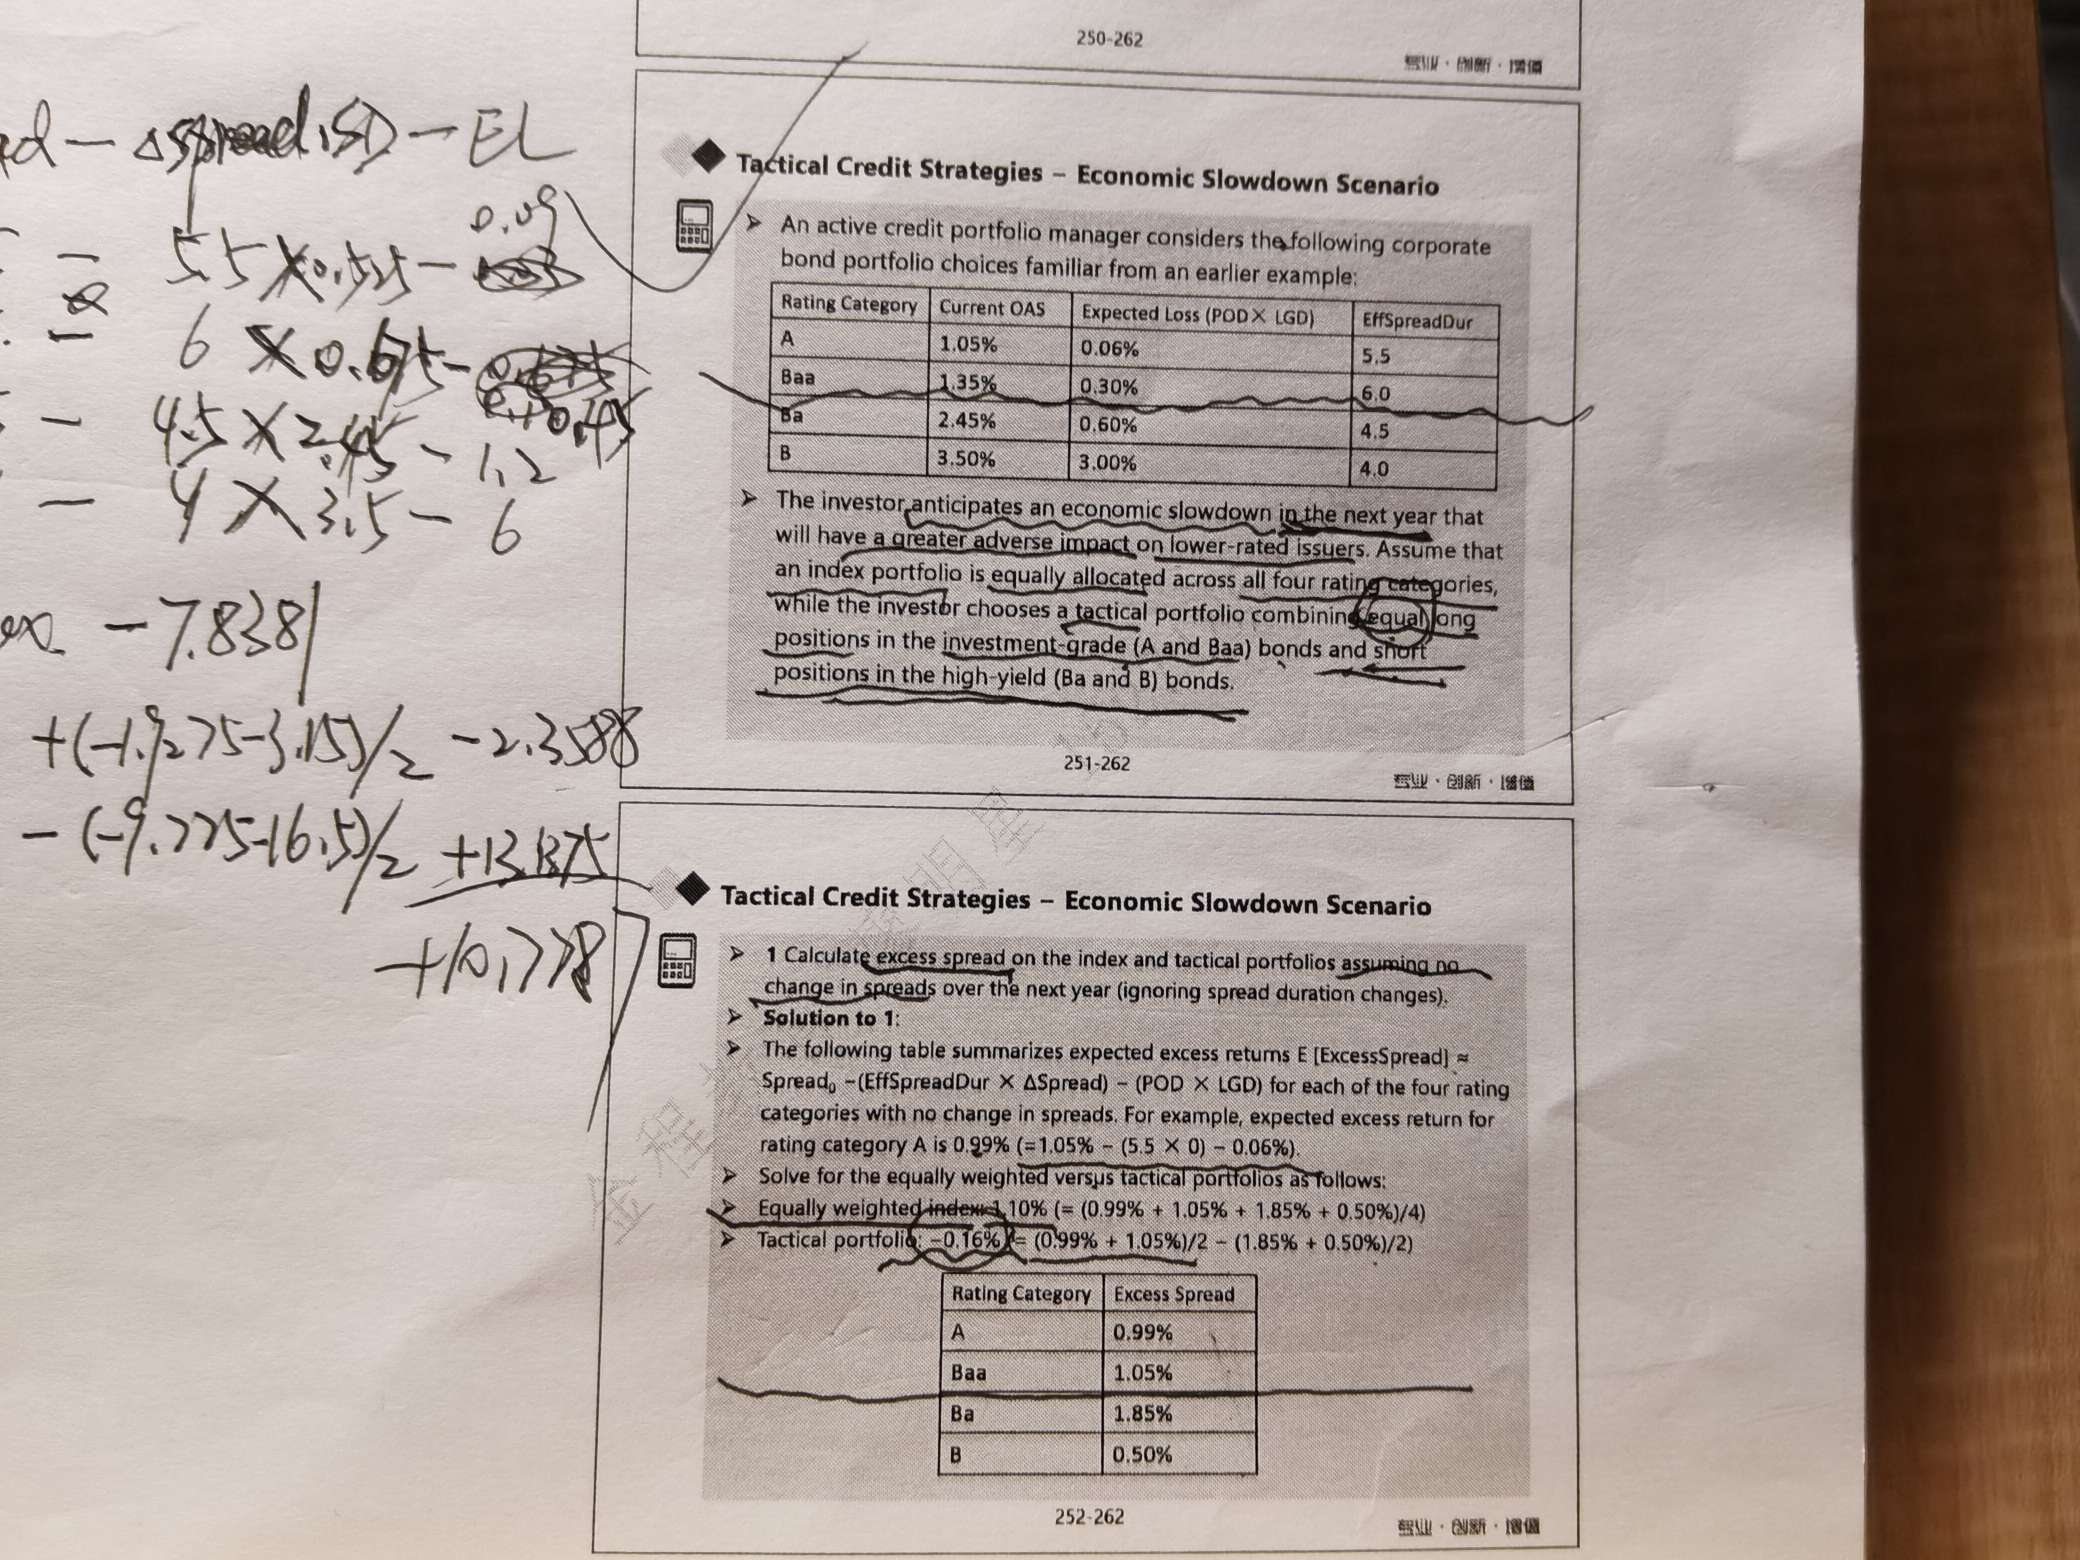 250-262
专业·创新·增值
Tactical Credit Strategies – Economic Slowdown Scenario
➤ An active credit portfolio manager considers the following corporate
bond portfolio choices familiar from an earlier example:
Rating Category Current OAS Expected Loss (POD× LGD) EffSpreadDur
A 1.05% 0.06% 5.5
Baa 1.35% 0.30% 6.0
Ba 2.45% 0.60% 4.5
B 3.50% 3.00% 4.0
➤ The investor anticipates an economic slowdown in the next year that
will have a greater adverse impact on lower-rated issuers. Assume that
an index portfolio is equally allocated across all four rating categories,
while the investor chooses a tactical portfolio combining equal long
positions in the investment-grade (A and Baa) bonds and short
positions in the high-yield (Ba and B) bonds.
251-262
专业·创新·增值
Tactical Credit Strategies – Economic Slowdown Scenario
➤ 1 Calculate excess spread on the index and tactical portfolios assuming no
change in spreads over the next year (ignoring spread duration changes).
➤ Solution to 1:
➤ The following table summarizes expected excess returns E [ExcessSpread] ≈
Spread₀ –(EffSpreadDur × ΔSpread) – (POD × LGD) for each of the four rating
categories with no change in spreads. For example, expected excess return for
rating category A is 0.99% (=1.05% – (5.5 × 0) – 0.06%).
➤ Solve for the equally weighted versus tactical portfolios as follows:
➤ Equally weighted index: 1.10% (= (0.99% + 1.05% + 1.85% + 0.50%)/4)
➤ Tactical portfolio: –0.16% (= (0.99% + 1.05%)/2 – (1.85% + 0.50%)/2)
Rating Category Excess Spread
A 0.99%
Baa 1.05%
Ba 1.85%
B 0.50%
252-262
专业·创新·增值
- Δspread·SD - EL
- 5.5 × 0.525 - 0.09
- 6 × 0.675 - 0.45
- 4.5 × 2.45 - 1.2
- 4 × 3.5 - 6
-7.838
+(-1.9275-3.15)/2 -2.3588
-(-9.775-16.5)/2 +13.1375
+10.778
金程